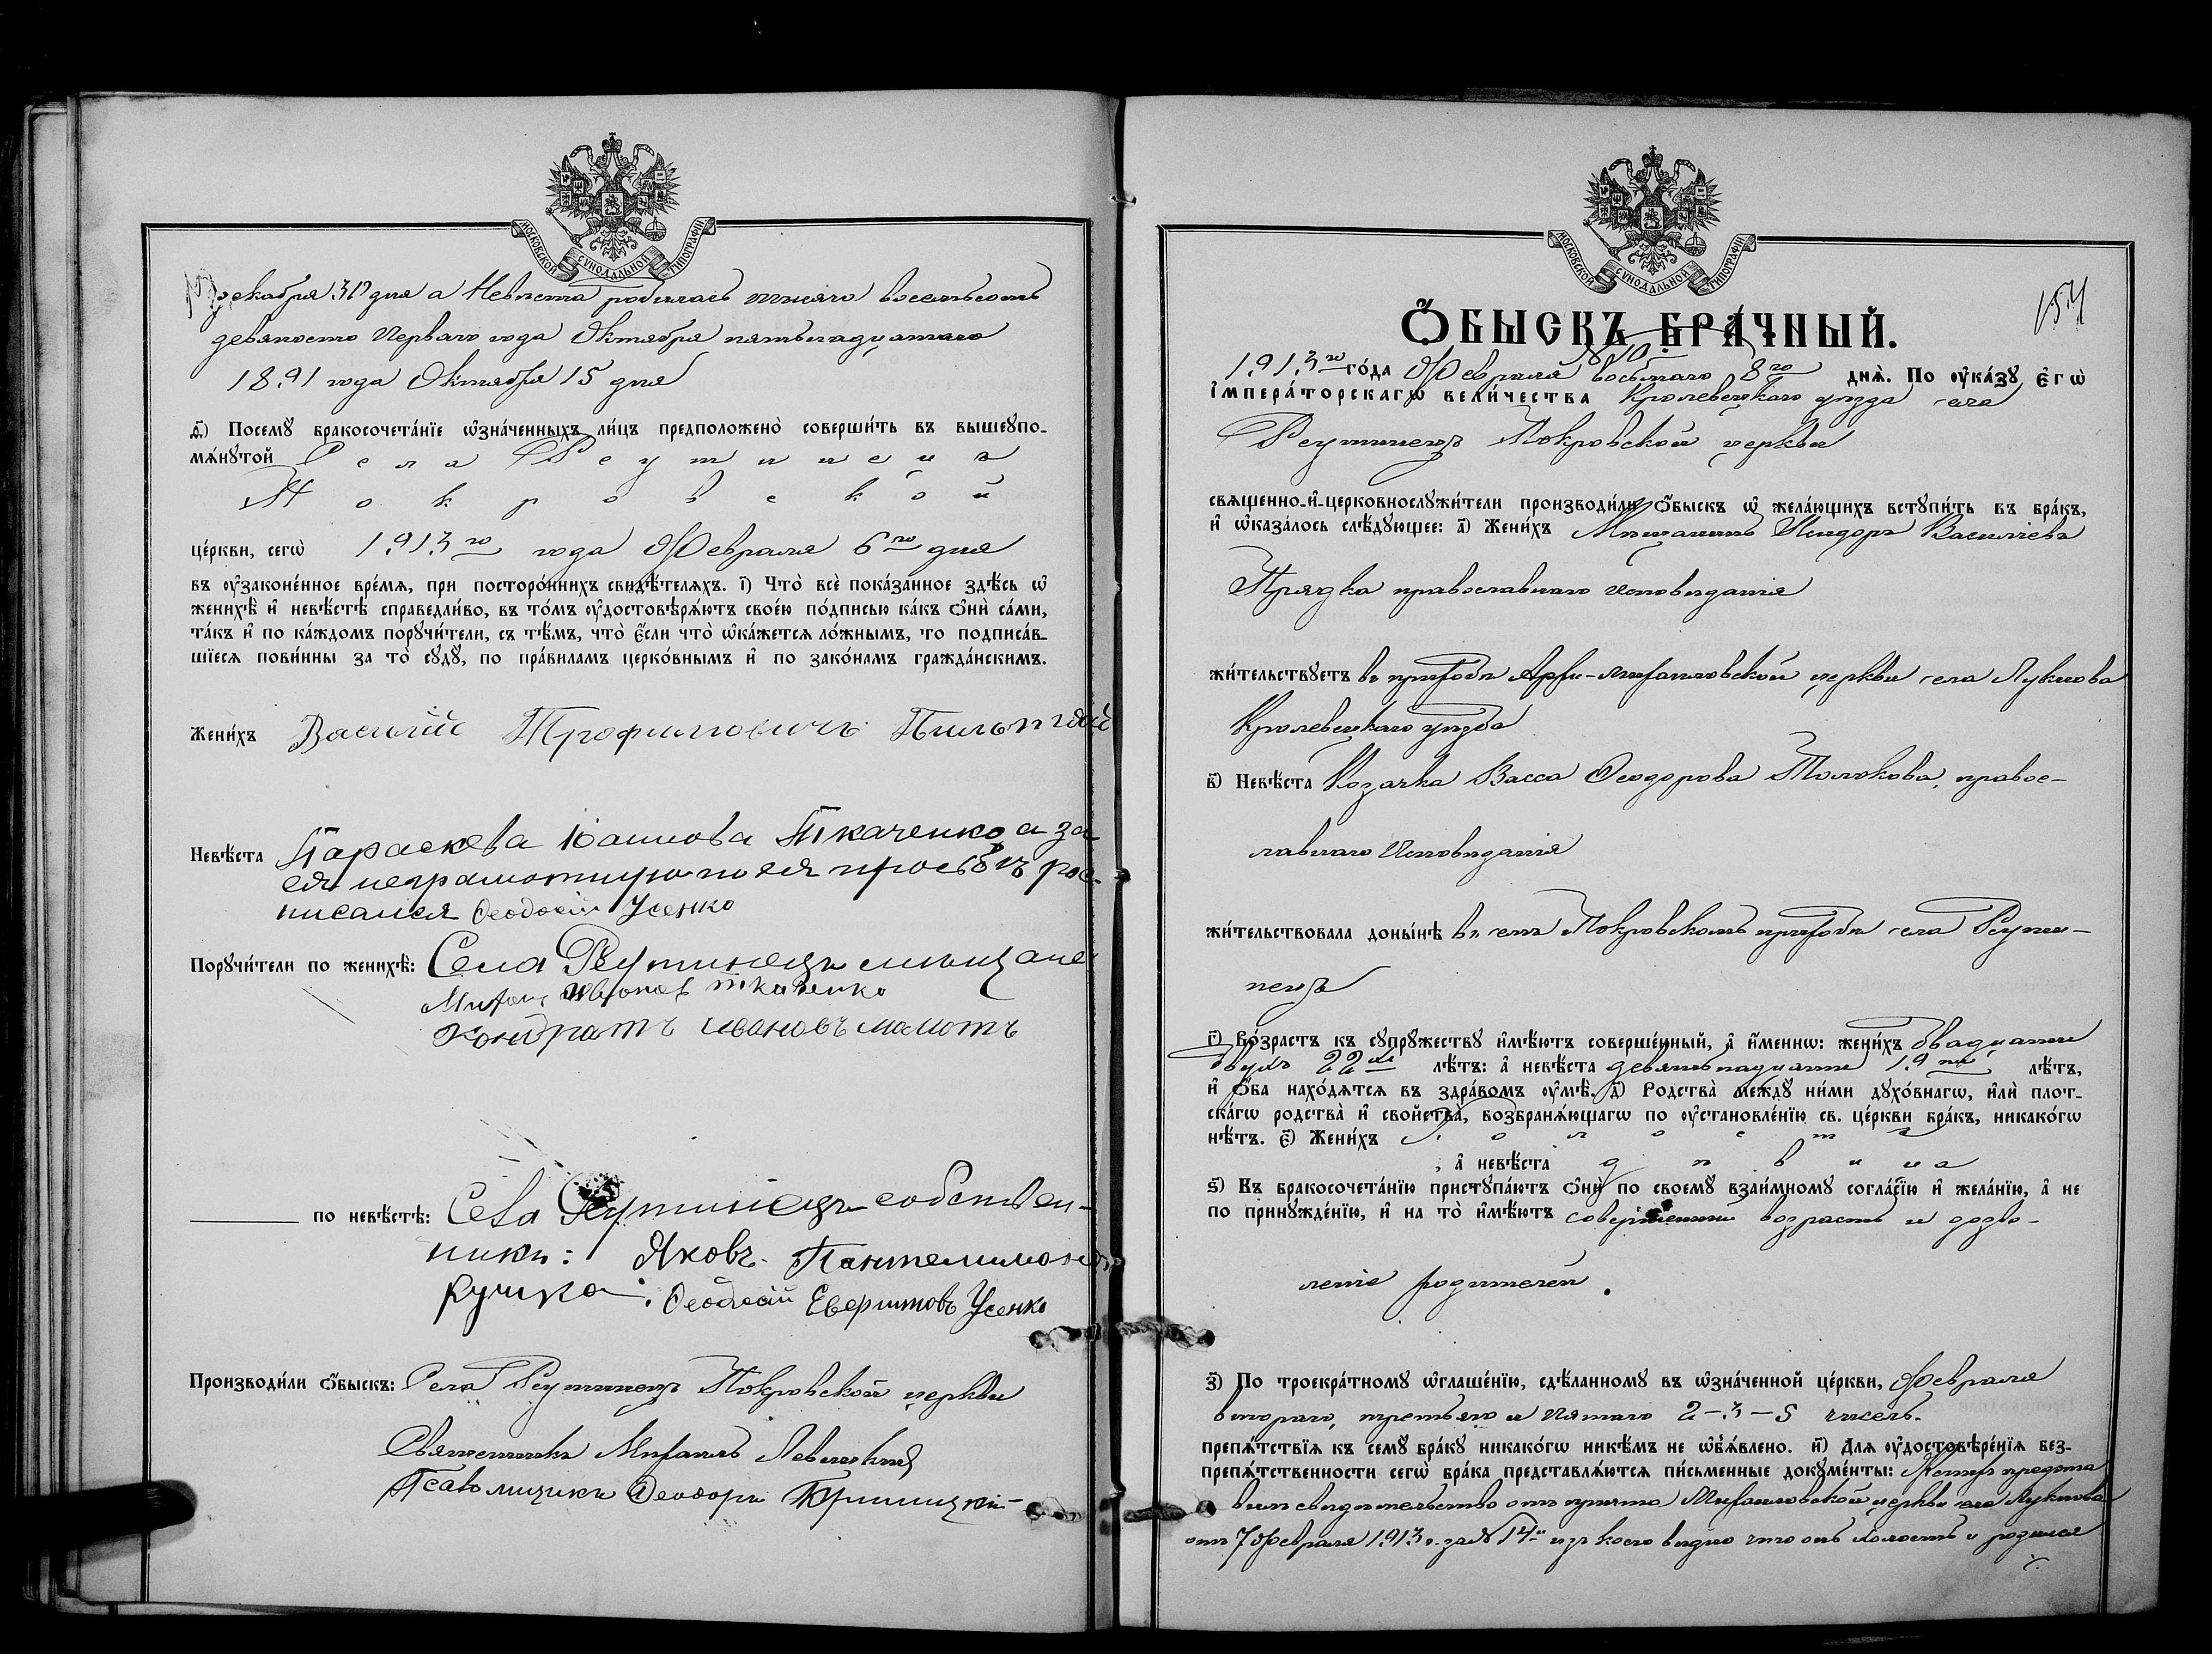 МОСКОВСКОЙ СѴНОДАЛЬНОЙ ТИПОГРАФІИ
декабря 30 дня а Невѣста родилась тысяча восемьсотъ
девяносто перваго года Октября пятьнадцатаго
1891 года Октября 15 дня
д҃) Посемꙋ бракосочета́нїе ѡ҆зна́ченныхъ ли́цъ предположено̀ соверши́ть въ вышеꙋпо-
мѧ́нꙋтой Села Реутинецъ
Покровской
це́ркви, сегѡ̀ 1913 го года Февраля 6 го дня
въ ᲂу҆законе́нное вре́мѧ, при посторо́ннихъ свидѣ́телѧхъ. і҃) Что̀ всѐ пока́занное здѣ́сь ѡ҆
женихѣ̀ и҆ невѣ́стѣ справедли́во, въ то́мъ ᲂу҆достовѣрѧ́ютъ свое́ю по́дписью ка́къ ѻ҆нѝ са́ми,
та́къ и҆ по ка́ждомъ порꙋчи́тели, съ тѣ́мъ, что̀ є҆́сли что̀ ѡ҆ка́жетсѧ ло́жнымъ, то подписа́в-
шїесѧ пови́нны за то̀ сꙋдꙋ̀, по пра́виламъ церко́внымъ и҆ по зако́намъ гражда́нскимъ.
Жени́хъ Василій Трофимовичъ
Невѣ́ста Параскева Іоаннова Ткаченко а за
ея неграмотную по ея просьбѣ рос-
писался Ѳеодосій Усенко
Порꙋчи́тели по женихѣ̀: Села Реутинецъ мѣщане
Ткаченко
Кондратъ Ивановъ Мамотъ
по невѣ́стѣ: Села Реутинецъ собствен-
ники: Яковъ Пантелимоновъ
Кучко: Ѳеодосій Усенко
Производи́ли ѻ҆́быскъ: Села Реутинецъ Покровской церкви
Священникъ Михаилъ Левицкій
Псаломщикъ Ѳеодоръ Криницкій
МОСКОВСКОЙ СѴНОДАЛЬНОЙ ТИПОГРАФІИ
154
Ѻ҆́БЫСКЪ БРА́ЧНЫЙ.
1913 го го́да Февраля восьмаго 8 го днѧ̀. По ᲂу҆ка́зꙋ є҆гѡ̀
і҆мпера́торскагѡ вели́чества Кролевецкаго уѣзда села
Реутинецъ Покровской церкви
свѧщенно-и҆-церковнослꙋжи́тели производи́ли ѻ҆́быскъ ѡ҆ жела́ющихъ встꙋпи́ть въ бра́къ,
и҆ ѡ҆каза́лось слѣ́дꙋющее: а҃) Жени́хъ Мѣщанинъ Исидоръ Васильевъ
Прядка православнаго исповѣданія
жи́тельствꙋетъ въ приходѣ Архи-михаиловской церкви села Лукнова
Кролевецкаго уѣзда
в҃) Невѣ́ста Козачка Васса Ѳеодорова Толокова, правос-
лавнаго исповѣданія
жи́тельствовала доны́нѣ въ Покровскомъ приходѣ села Реути-
нецъ
г҃) Во́зрастъ къ сꙋпрꙋ́жествꙋ и҆мѣ́ютъ соверше́нный, а҆ и҆́меннѡ: жени́хъ двадцати
двухъ 22 хъ лѣ́тъ: а҆ невѣ́ста девятьнадцати 19 ти лѣ́тъ,
и҆ ѻ҆́ба нахо́дѧтсѧ въ здра́вомъ ᲂу҆мѣ̀. д҃) Родства̀ междꙋ̀ ни́ми дꙋхо́внагѡ, и҆лѝ плот-
ска́гѡ родства̀ и҆ свойства̀, возбранѧ́ющагѡ по ᲂу҆становле́нїю св. це́ркви бра́къ, никако́гѡ
нѣ́тъ. є҃) Жени́хъ холостъ
; а҆ невѣ́ста дѣвица
ѕ҃) Въ бракосочета́нїю пристꙋпа́ютъ ѻ҆нѝ по своемꙋ̀ взаи́мномꙋ согла́сїю и҆ жела́нїю, а҆ не
по принꙋжде́нїю, и҆ на то̀ и҆мѣ́ютъ совершенный возрастъ и дозво-
леніе родителей.
з҃) По троекра́тномꙋ ѡ҆глаше́нїю, сдѣ́ланномꙋ въ ѡ҆зна́ченной це́ркви, Февраля
втораго, третьяго и пятаго 2-3-5 чиселъ.
препѧ́тствїѧ къ семꙋ̀ бра́кꙋ никако́гѡ никѣ́мъ не ѡ҆б̾ѧ́влено. и҃) Длѧ ᲂу҆достовѣре́нїѧ без-
препѧ́тственности сегѡ̀ бра́ка представлѧ́ютсѧ пи́сьменные докꙋме́нты: Женихъ предста
вилъ свидѣтельство отъ причта Михаиловской церкви села Лукнова
отъ 7 Февраля 1913 г. за № 14 изъ коего видно что онъ холостъ и родился